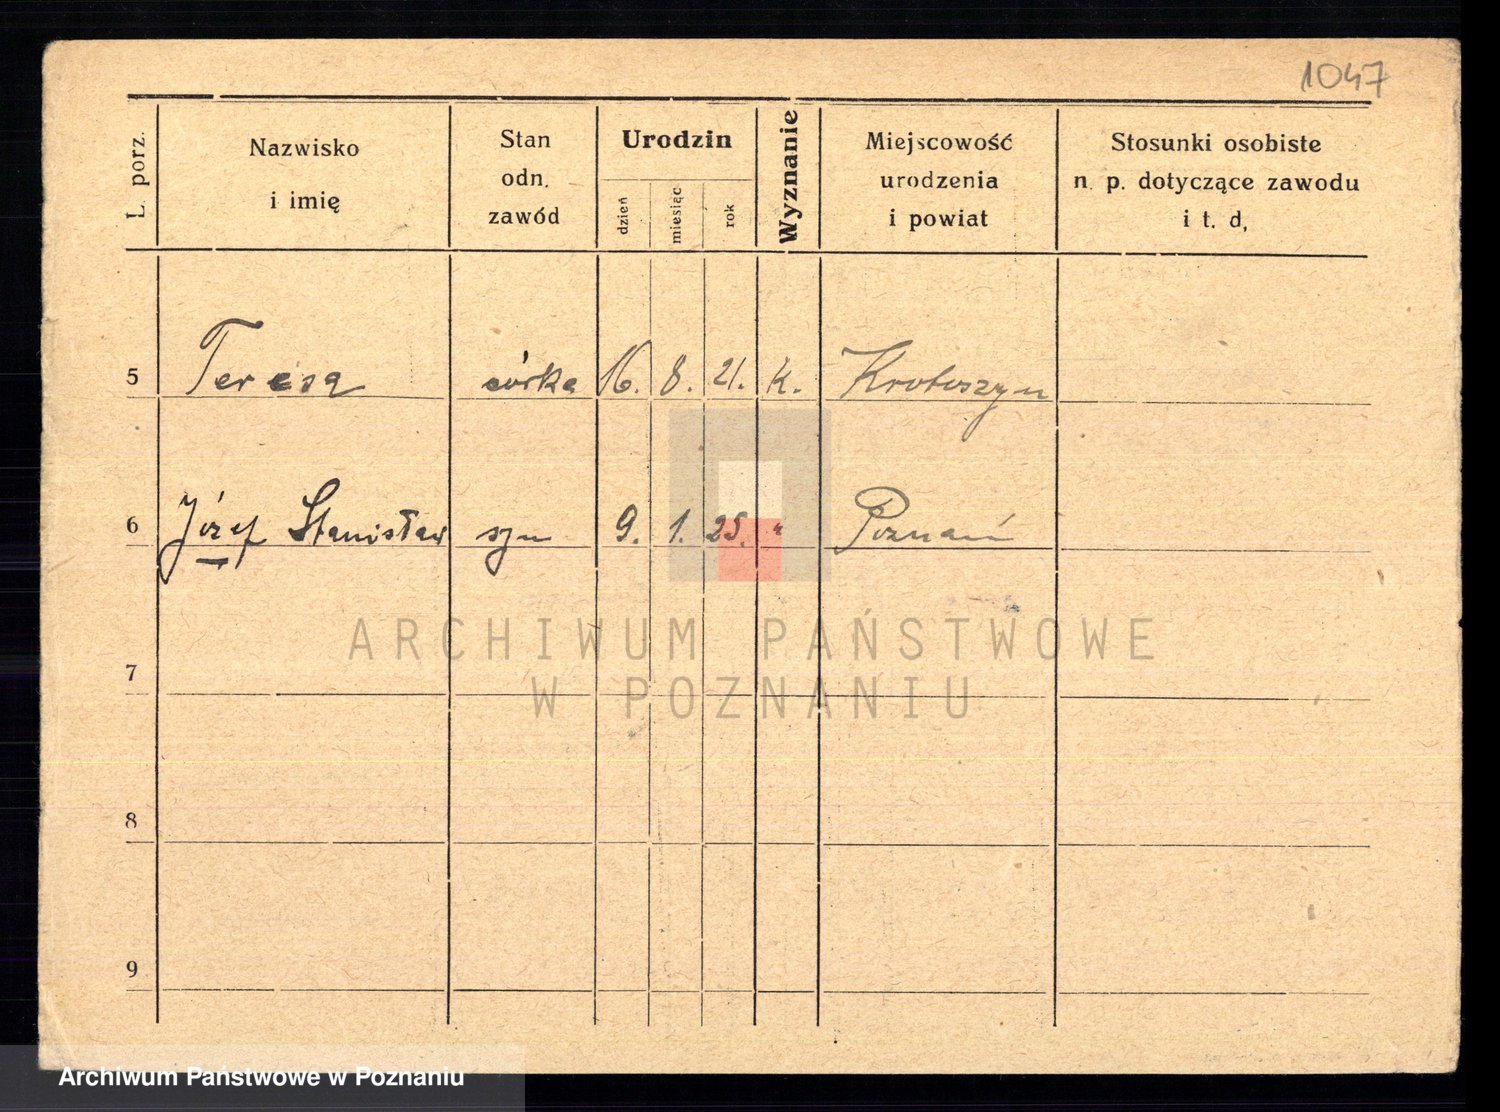 1047
L. porz.
Nazwisko
i imię
Stan
odn.
zawód
Urodzin
dzień
miesiąc
rok
Wyznanie
Miejscowość
urodzenia
i powiat
Stosunki osobiste
n. p. dotyczące zawodu
i t. d,
5 Teresa córka 16. 8. 21. K. Krotoszyn
6 Józef Stanisław syn 9. 1. 25. " Poznań
ARCHIWUM PAŃSTWOWE
W POZNANIU
7
8
9
Archiwum Państwowe w Poznaniu